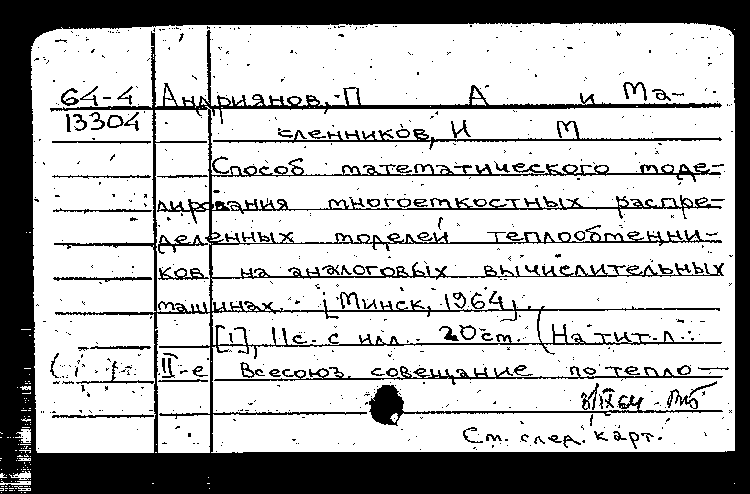 64-4 Андриянов, П А и Ма-
13304 сленников, И М
Способ математического моде-
лирования многоемкостных распре-
деленных моделей теплообменни-
ков на аналоговых вычислительных
машинах. [Минск, 1964].
[1], 11с. с илл. 20см. (На тит. л.:
II-е Всесоюз. совещание по тепло-
См. след. карт.